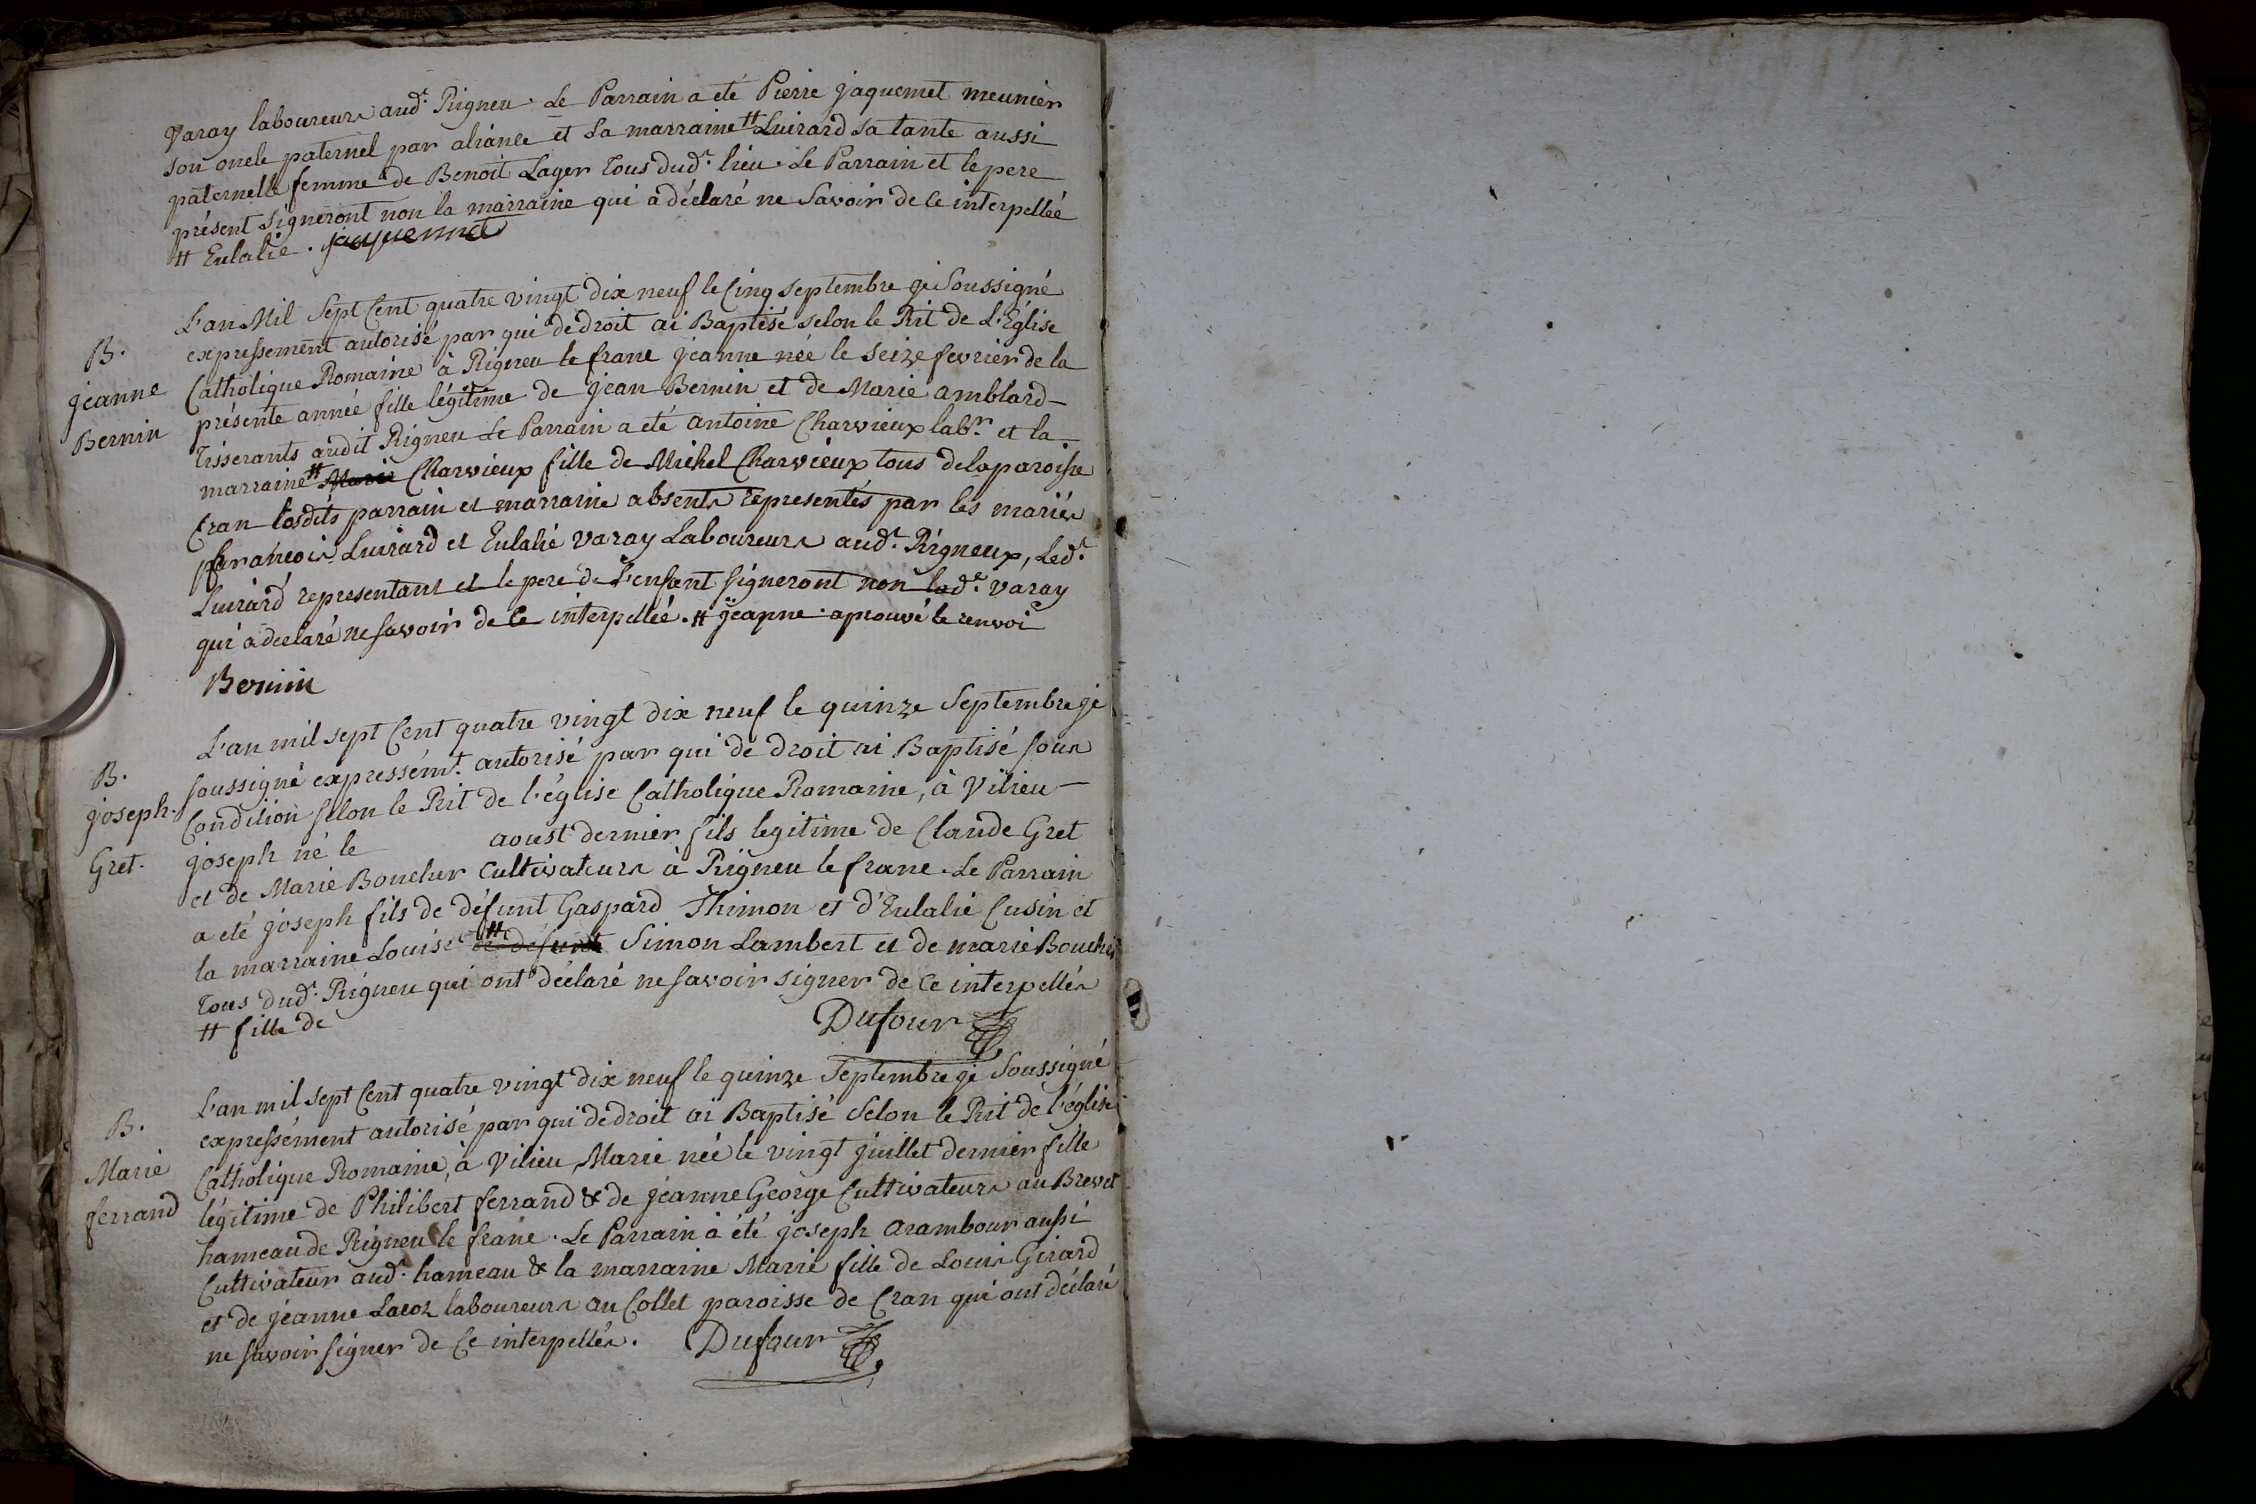 Varay laboureurs aud.t Rigneu. Le Parrain a eté Pierre jaquemet meunier
son oncle paternel par aliance et la marraine # Luirard sa tante aussi
paternelle femme de Benoit Lager tous dud.t lieu. Le Parrain et le pere
présent signeront non la marraine qui a déclaré ne savoir de ce interpellée
# Eulalie. jaquemet
L'an Mil Sept Cent quatre vingt dix neuf le Cinq septembre je Soussigné
expressement autorisé par qui de droit ai Baptisé selon le Rit de L'Eglise
B.
Catholique Romaine à Rigneu le franc jeanne née le seize fevrier de la
jeanne
présente année fille légitime de jean Bernin et de Marie amblard
Bernin
Tisserants audit Rigneu Le Parrain a eté antoine Charvieux lab.r et la
marraine # Marie Charvieux fille de Michel Charvieux tous de la paroisse
Cran lesdits parrain et marraine absents representés par les mariés
francois Luirard et Eulalie varay Laboureurs aud.t Rigneux, Led.t
Luirard representant et le pere de l'enfant signeront non lad.e varay
qui a declaré ne savoir de ce interpellée. # jeanne aprouvé le renvoi
Bernin
L'an mil sept Cent quatre vingt dix neuf le quinze Septembre je
soussigné expressém.t autorisé par qui de droit ai Baptisé sous
B.
Condition selon le Rit de l'église Catholique Romaine, à Vilieu
joseph
joseph né le aoust dernier fils legitime de Claude Gret
Gret.
et de Marie Boucher Cultivateurs à Rigneu le franc. Le Parrain
a eté joseph fils de défunt Gaspard Thimon et d'Eulalie Cusin et
la marraine Louise # de défunt Simon Lambert et de marie Boucher
tous dud.t Rigneu qui ont déclaré ne savoir signer de ce interpellés
# fille de
Dufour
L'an mil sept Cent quatre vingt dix neuf le quinze Septembre je Soussigné
B.
expressément autorisé par qui de droit ai Baptisé selon le Rit de l'église
Marie
Catholique Romaine, à Vilieu Marie née le vingt juillet dernier fille
ferrand
légitime de Philibert ferrand & de jeanne George Cultivateurs au Brevet
hameau de Rigneu le franc. Le Parrain à été joseph arambour aussi
Cultivateur aud.t hameau & la marraine Marie fille de Louis Girard
et de jeanne Lacoz laboureurs au Collet paroisse de Cran qui ont déclaré
ne savoir signer de Ce interpellés. Dufour